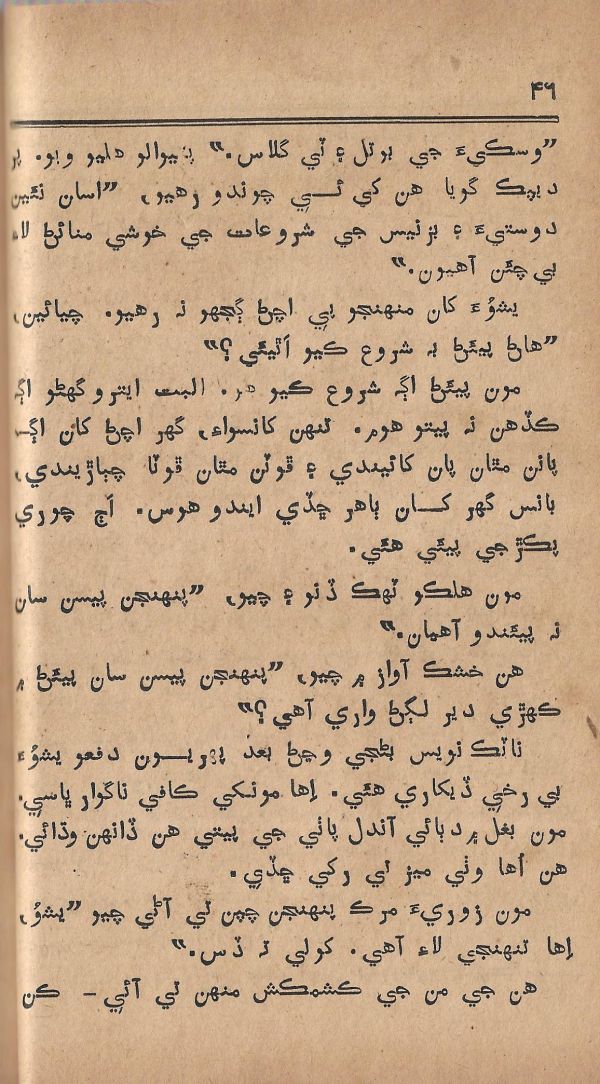 ۴۶
”وسڪيءَ جي بوتل ۽ ٽي گلاس.“ پٽيوالو هليو ويو. پر
ديپڪ گويا هن کي ئي چوندو رهيو، ”اسان نئين
دوستيءَ ۽ بزنيس جي شروعات جي خوشي منائڻ لاءِ
پي چڪن آهيون.“
يشوُءَ کان منهنجو پي اچڻ ڳجهو نہ رهيو. چيائين،
”هاڻ پيئڻ بہ شروع ڪيو اٿيئي؟“
مون پيئڻ اڳہ شروع ڪيو هو. البت ايترو گهڻو اڳہ
ڪڏهن نہ پيتو هوم. تنهن کانسواءِ، گهر اچڻ کان اڳہ
پائن مٿان پان کائيندي ۽ ڦوٽن مٿان ڦوٽا چٻاڙيندي،
بانس گهر کان ٻاهر ڇڏي ايندو هوس. اَڄ چوري
پڪڙجي پيئي هئي.
مون هلڪو ٽهڪ ڏنو ۽ چيو، ”پنهنجن پيسن سان
نہ پيئندو آهيان.“
هن خشڪ آواز ۾ چيو، ”پنهنجن پيسن سان پيئڻ ۾
ڪهڙي دير لڳڻ واري آهي؟“
ناٽڪ نويس بڻجي وڃڻ بعد پهريون دفعو يشوُءَ
بي رخي ڏيکاري هئي. اِها مونکي ڪافي ناگوار ڀاسي.
مون بغل ۾ دٻائي آندل پاڻي جي پيتي هن ڏانهن وڌائي.
هن اُها وٺي ميز تي رکي ڇڏي.
مون زوريءَ مرڪ پنهنجن چپن تي آڻي چيو ”يشوُ،
اِها تنهنجي لاءِ آهي. کولي تہ ڏس.“
هن جي من جي ڪشمڪش منهن تي آئي - کن